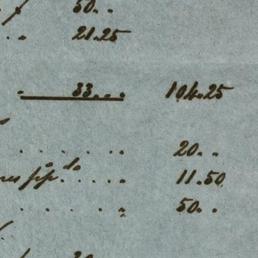 50. .
21.25
33. . . 106.25
. . . . . . 20. .
. . . . 11.50
. . . . . . 50. .